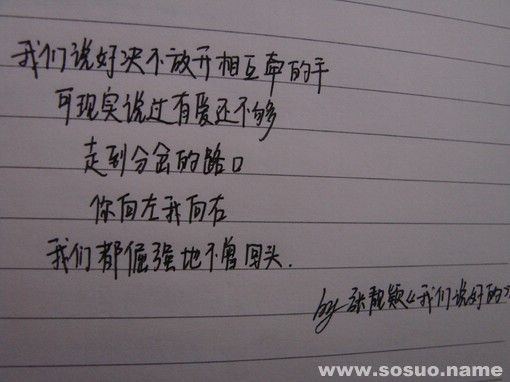 我们说好决不放开相互牵的手
可现实说过有爱还不够
走到分岔的路口
你向左我向右
我们都倔强地不曾回头.
by 张靓颖《我们说好的
www.sosuo.name